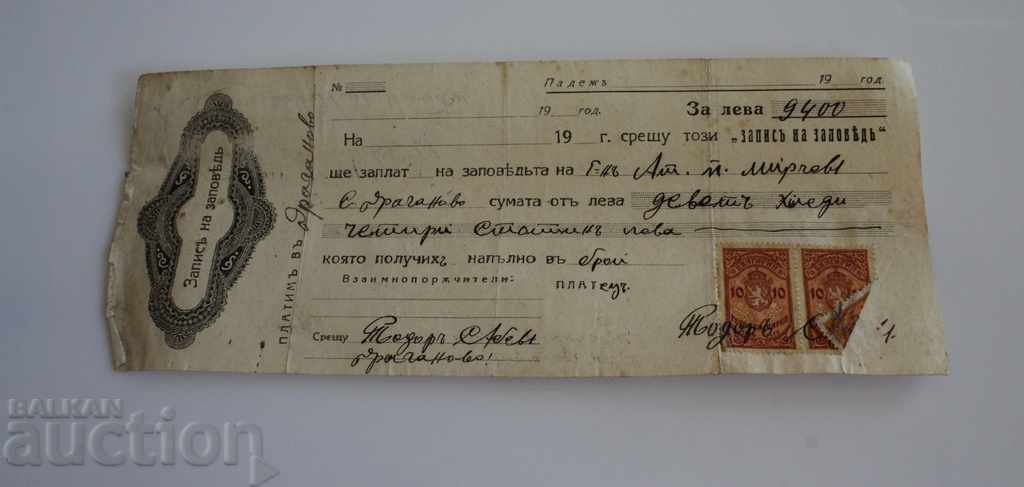 Записъ на заповѣдь
ПЛАТИМЪ ВЪ Драганово
№ Падежъ 19 год.
19 год. За лева 9400
На 19 г. срещу този „ЗАПИСЪ НА ЗАПОВѢДЬ"
ще заплат на заповѣдьта на Г-нъ Ат. П. Мирчевъ
с. Драганово сумата отъ лева деветь хиледи
четири стотинъ лева
която получихъ напълно въ брой
Взаимнопоржчители: ПЛАТЕЦЪ
Срещу Тодоръ
Драганово!
Тодоръ
10 10
10 10
BALKAN
auction